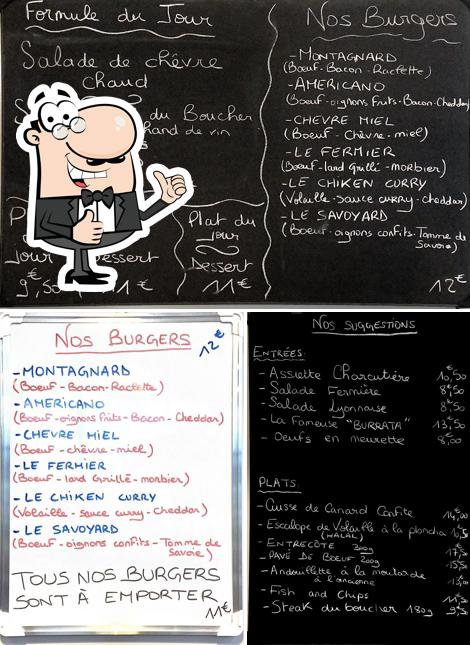 Formule du Jour
Salade de chêvre
chaud
du Boucher
hand de vin
Jour
Dessert
9,50
11€
Plat du
jour
Dessert
11€
Nos Burgers
- MONTAGNARD
(Boeuf - Bacon - Raclette)
- AMERICANO
(Boeuf - oignons frits - Bacon - Cheddar)
- CHEVRE MIEL
(Boeuf - Chèvre - miel)
- LE FERMIER
(Boeuf - lard Grillé - morbier)
- LE CHIKEN CURRY
(Volaille - sauce curry - cheddar)
- LE SAVOYARD
(Boeuf - oignons confits - Tomme de
Savoie)
12€
NOS BURGERS
12€
- MONTAGNARD
(Boeuf - Bacon - Raclette)
- AMERICANO
(Boeuf - oignons frits - Bacon - Cheddar)
- CHEVRE MIEL
(Boeuf - chèvre - miel)
- LE FERMIER
(Boeuf - lard Grillé - morbier)
- LE CHIKEN CURRY
(Volaille - sauce curry - cheddar)
- LE SAVOYARD
(Boeuf - oignons confits - Tomme de
Savoie)
TOUS NOS BURGERS
SONT À EMPORTER
11€
NOS SUGGESTIONS
ENTRÉES:
- Assiette Charcutière 10,50
- Salade Fermière 8,50
- Salade Lyonnaise 8,50
- La Fameuse "BURRATA" 13,50
- Oeufs en meurette 8,00
PLATS:
- Cuisse de Canard Confite 14,00
- Escalope de Volaille à la plancha
(HALAL)
- ENTRECÔTE 300g
- PAVÉ DE BOEUF 200g
- Andouillette à la moutarde
à l'ancienne
- Fish and Chips
- Steak du boucher 180g